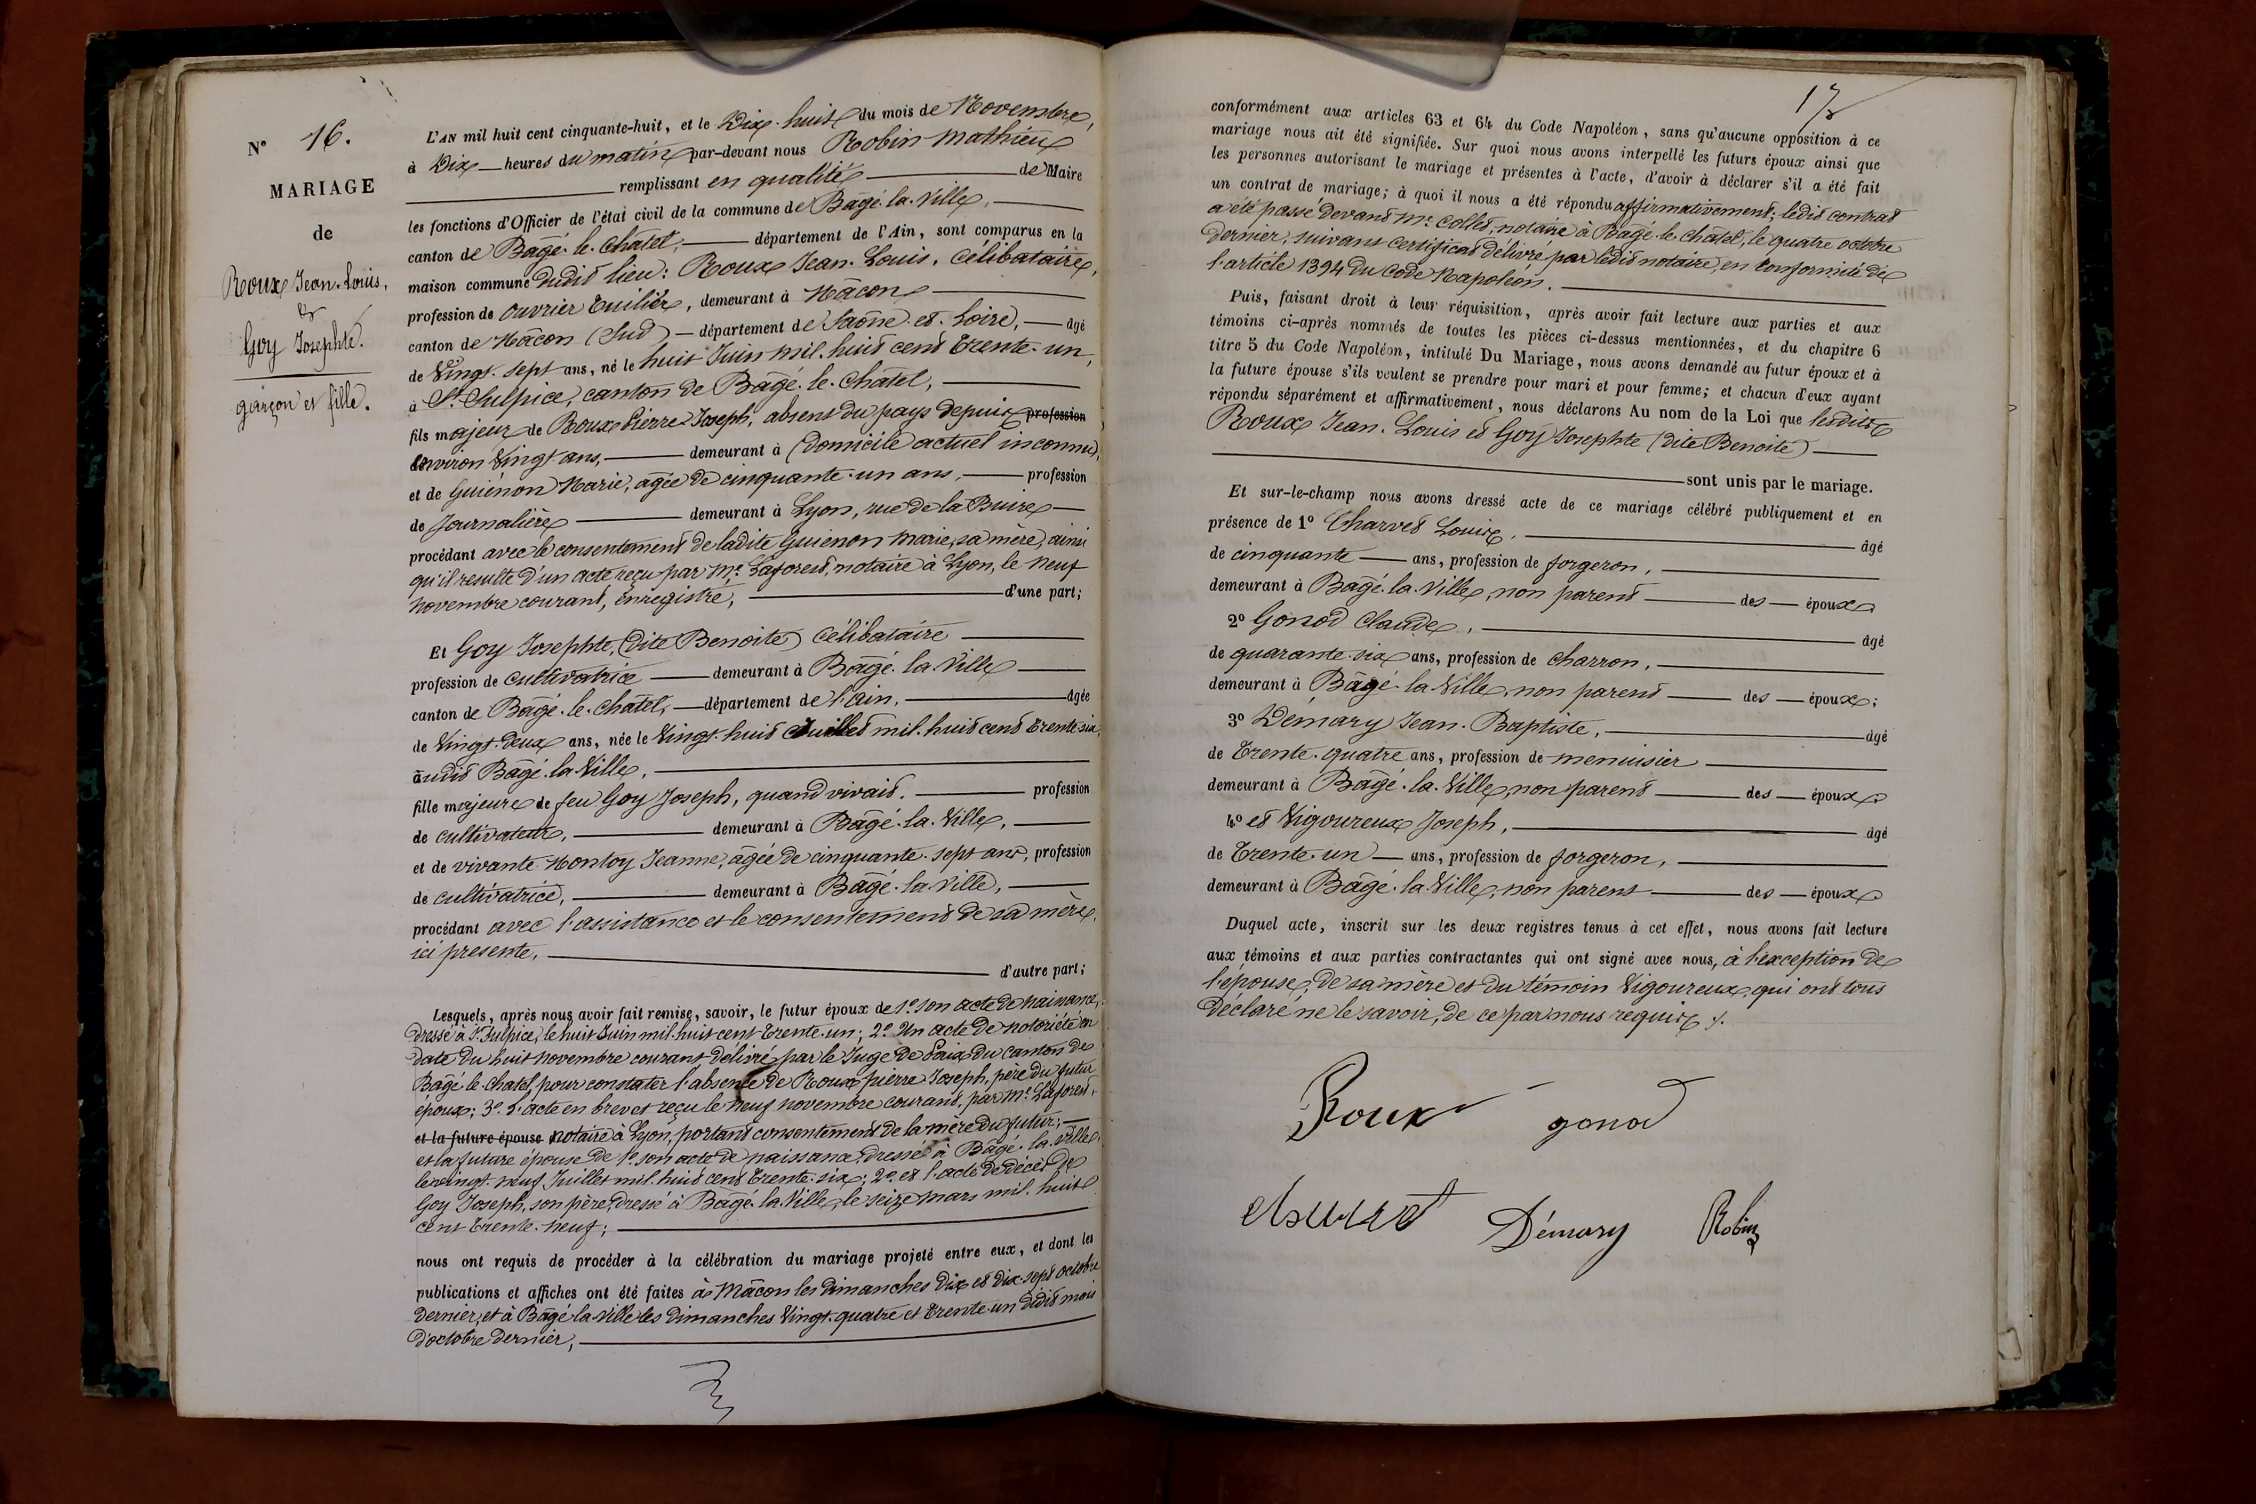 N° 16.
MARIAGE
de
Roux Jean-Louis,
&
Goy Josephte.
garçon et fille.
L'AN mil huit cent cinquante-huit, et le Dix-huit du mois de Novembre,
à Dix heures du matin par-devant nous Robin Mathieu
remplissant en qualité de Maire
les fonctions d'Officier de l'état civil de la commune de Bâgé-la-Ville,
canton de Bâgé-le-Chatel, département de l'Ain, sont comparus en la
maison commune dudit lieu: Roux Jean-Louis, Célibataire,
profession de ouvrier Tuilier, demeurant à Mâcon
canton de Mâcon (Sud) département de Saône-et-Loire, âgé
de Vingt-sept ans, né le huit Juin mil-huit cent trente-un,
à St Sulpice, canton de Bâgé-le-Châtel,
fils majeur de Roux Pierre Joseph, absent du pays depuis profession
environ Vingt ans, demeurant à (domicile actuel inconnu),
et de Guiénon Marie, agée de cinquante-un ans, profession
de Journalière demeurant à Lyon, rue de la Buire
procédant avec le consentement de ladite Guiénon Marie, sa mère, ainsi
qu'il resulte d'un acte reçu par Me Laforest, notaire à Lyon, le neuf
novembre courant, enregistré, d'une part;
Et Goy Josephte, (dite Benoite) Célibataire
profession de cultivatrice demeurant à Bâgé-la-Ville
canton de Bâgé-le-Châtel, département de l'ain, âgée
de Vingt-deux ans, née le Vingt-huit Juillet mil-huit cent trente-six,
audit Bâgé-la-Ville,
fille majeure de feu Goy Joseph, quand vivait, profession
de cultivateur, demeurant à Bâgé-la-Ville,
et de vivante Montoy Jeanne, âgée de cinquante-sept ans, profession
de cultivatrice, demeurant à Bâgé-la-Ville,
procédant avec l'assistance et le consentement de sa mère,
ici presente, d'autre part;
Lesquels, après nous avoir fait remise, savoir, le futur époux de 1° son acte de naissance,
dressé à St Sulpice, le huit Juin mil-huit cent trente-un; 2° Un acte de notoriété en
date du huit novembre courant délivré par le Juge de Paix du canton de
Bâgé-le-chatel, pour constater l'absence de Roux pierre Joseph, père du futur
époux; 3° L'acte en brevet reçu le neuf novembre courant, par Me Laforest,
et la future épouse notaire à Lyon, portant consentement de la mère du futur;
et la future épouse de 1° son acte de naissance, dressé à Bâgé-la-Ville,
le vingt-neuf Juillet mil-huit cent trente-six; 2° et l'acte de décès de
Goy Joseph, son père, dressé à Bâgé-la-Ville, le seize mars mil-huit
cent trente-neuf;
nous ont requis de procéder à la célébration du mariage projeté entre eux, et dont les
publications et affiches ont été faites à Mâcon les Dimanches Dix et dix-sept octobre
dernier, et à Bâgé-la-Ville les Dimanches Vingt-quatre et trente-un dudit mois
d'octobre dernier,
17
conformément aux articles 63 et 64 du Code Napoléon, sans qu'aucune opposition à ce
mariage nous ait été signifiée. Sur quoi nous avons interpellé les futurs époux ainsi que
les personnes autorisant le mariage et présentes à l'acte, d'avoir à déclarer s'il a été fait
un contrat de mariage; à quoi il nous a été répondu affirmativement; ledit contrat
a été passé devant Me Collet, notaire à Bâgé-le-châtel, le quatre octobre
dernier, suivant certificat délivré par ledit notaire, en conformité de
l'article 1394 du Code Napoléon.
Puis, faisant droit à leur réquisition, après avoir fait lecture aux parties et aux
témoins ci-après nommés de toutes les pièces ci-dessus mentionnées, et du chapitre 6
titre 5 du Code Napoléon, intitulé Du Mariage, nous avons demandé au futur époux et à
la future épouse s'ils veulent se prendre pour mari et pour femme; et chacun d'eux ayant
répondu séparément et affirmativement, nous déclarons Au nom de la Loi que lesdits
Roux Jean-Louis et Goy Josephte (dite Benoite)
sont unis par le mariage.
Et sur-le-champ nous avons dressé acte de ce mariage célébré publiquement et en
présence de 1° Charvet Louis, âgé
de cinquante ans, profession de forgeron,
demeurant à Bâgé-la-Ville, non parent des époux
2° Gonod Claude, âgé
de quarante-six ans, profession de charron,
demeurant à Bâgé-la-Ville, non parent des époux;
3° Démary Jean-Baptiste, âgé
de trente-quatre ans, profession de menuisier
demeurant à Bâgé-la-Ville, non parent des époux
4° et Vigoureux Joseph, âgé
de trente-un ans, profession de forgeron,
demeurant à Bâgé-la-Ville, non parent des époux
Duquel acte, inscrit sur les deux registres tenus à cet effet, nous avons fait lecture
aux témoins et aux parties contractantes qui ont signé avec nous, à l'exception de
l'épouse, de sa mère et du témoin Vigoureux, qui ont tous
déclaré ne le savoir, de ce par nous requis.
Roux gonod
charvet Démary Robin